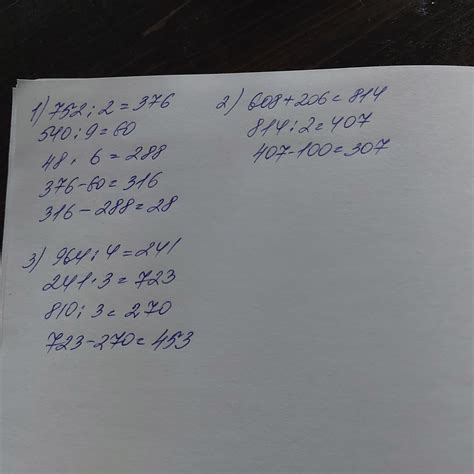 1) 752 : 2 = 376
540 : 9 = 60
48 · 6 = 288
376 - 60 = 316
316 - 288 = 28
2) 608 + 206 = 814
814 : 2 = 407
407 - 100 = 307
3) 964 : 4 = 241
241 · 3 = 723
810 : 3 = 270
723 - 270 = 453